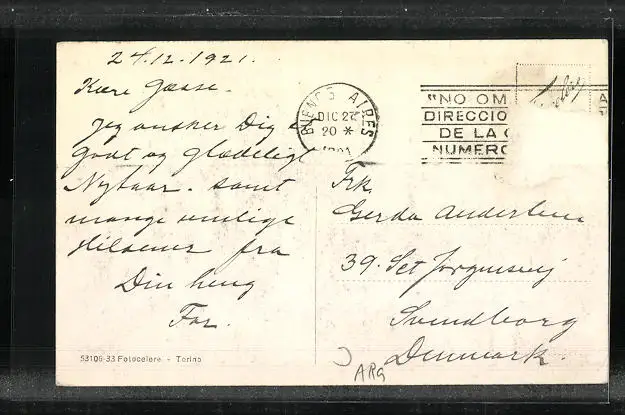 24.12.1921.
Kære Gasse.
Jeg ønsker Dig e
Godt og Glædeligt
Nytaar. samt
mange venlige
Hilsener fra
Din heng
Far.
53106-33 Fotocelere - Torino
BUENOS AIRES
DIC 27
20 *
"NO OM
DIRECCIO
DE LA
NUMERO
A
Frk,
Gerda Andersen
39. Sct Jørgensvej
Svendborg
Denmark.
ARG